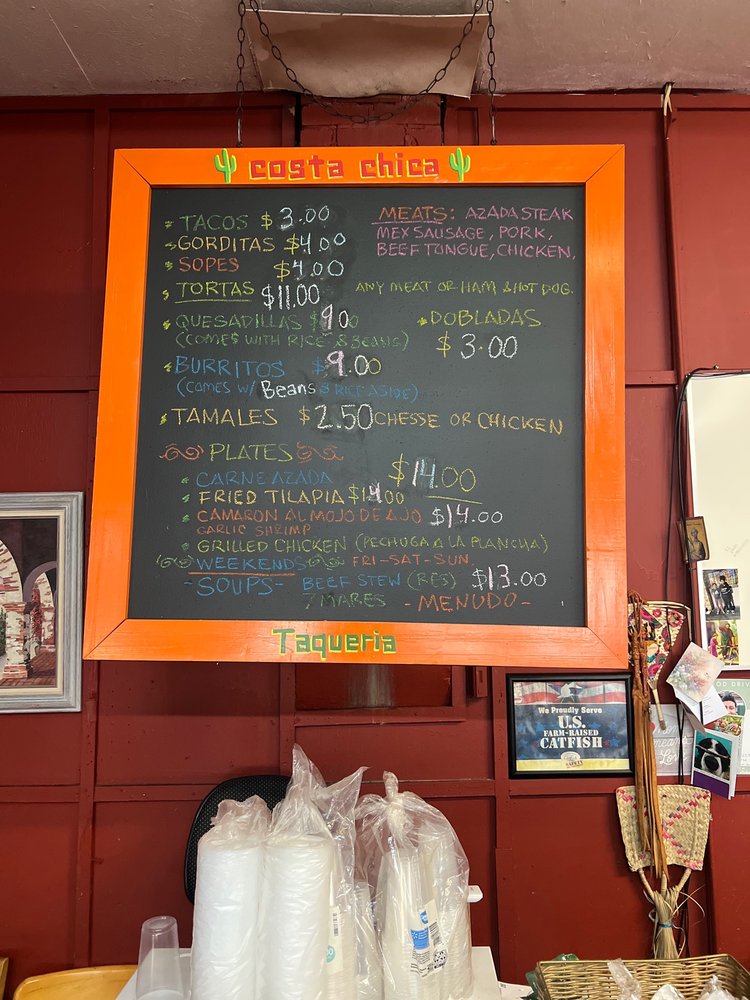 costa chica
TACOS $3.00
GORDITAS $4.00
SOPES $4.00
TORTAS $11.00 ANY MEAT OR HAM & HOT DOG.
MEATS: AZADA STEAK
MEX SAUSAGE, PORK,
BEEF TONGUE, CHICKEN,
QUESADILLAS $9.00
(COMES WITH RICE & BEANS)
DOBLADAS
$3.00
BURRITOS $9.00
(COMES W/ Beans & RICE ASIDE)
TAMALES $2.50 CHESSE OR CHICKEN
PLATES
CARNE AZADA $14.00
FRIED TILAPIA $14.00
CAMARON AL MOJO DE AJO $14.00
GARLIC SHRIMP
GRILLED CHICKEN (PECHUGA A LA PLANCHA)
WEEKENDS FRI-SAT-SUN
-SOUPS- BEEF STEW (RES) $13.00
7 MARES -MENUDO-
Taqueria
We Proudly Serve
U.S.
FARM-RAISED
CATFISH